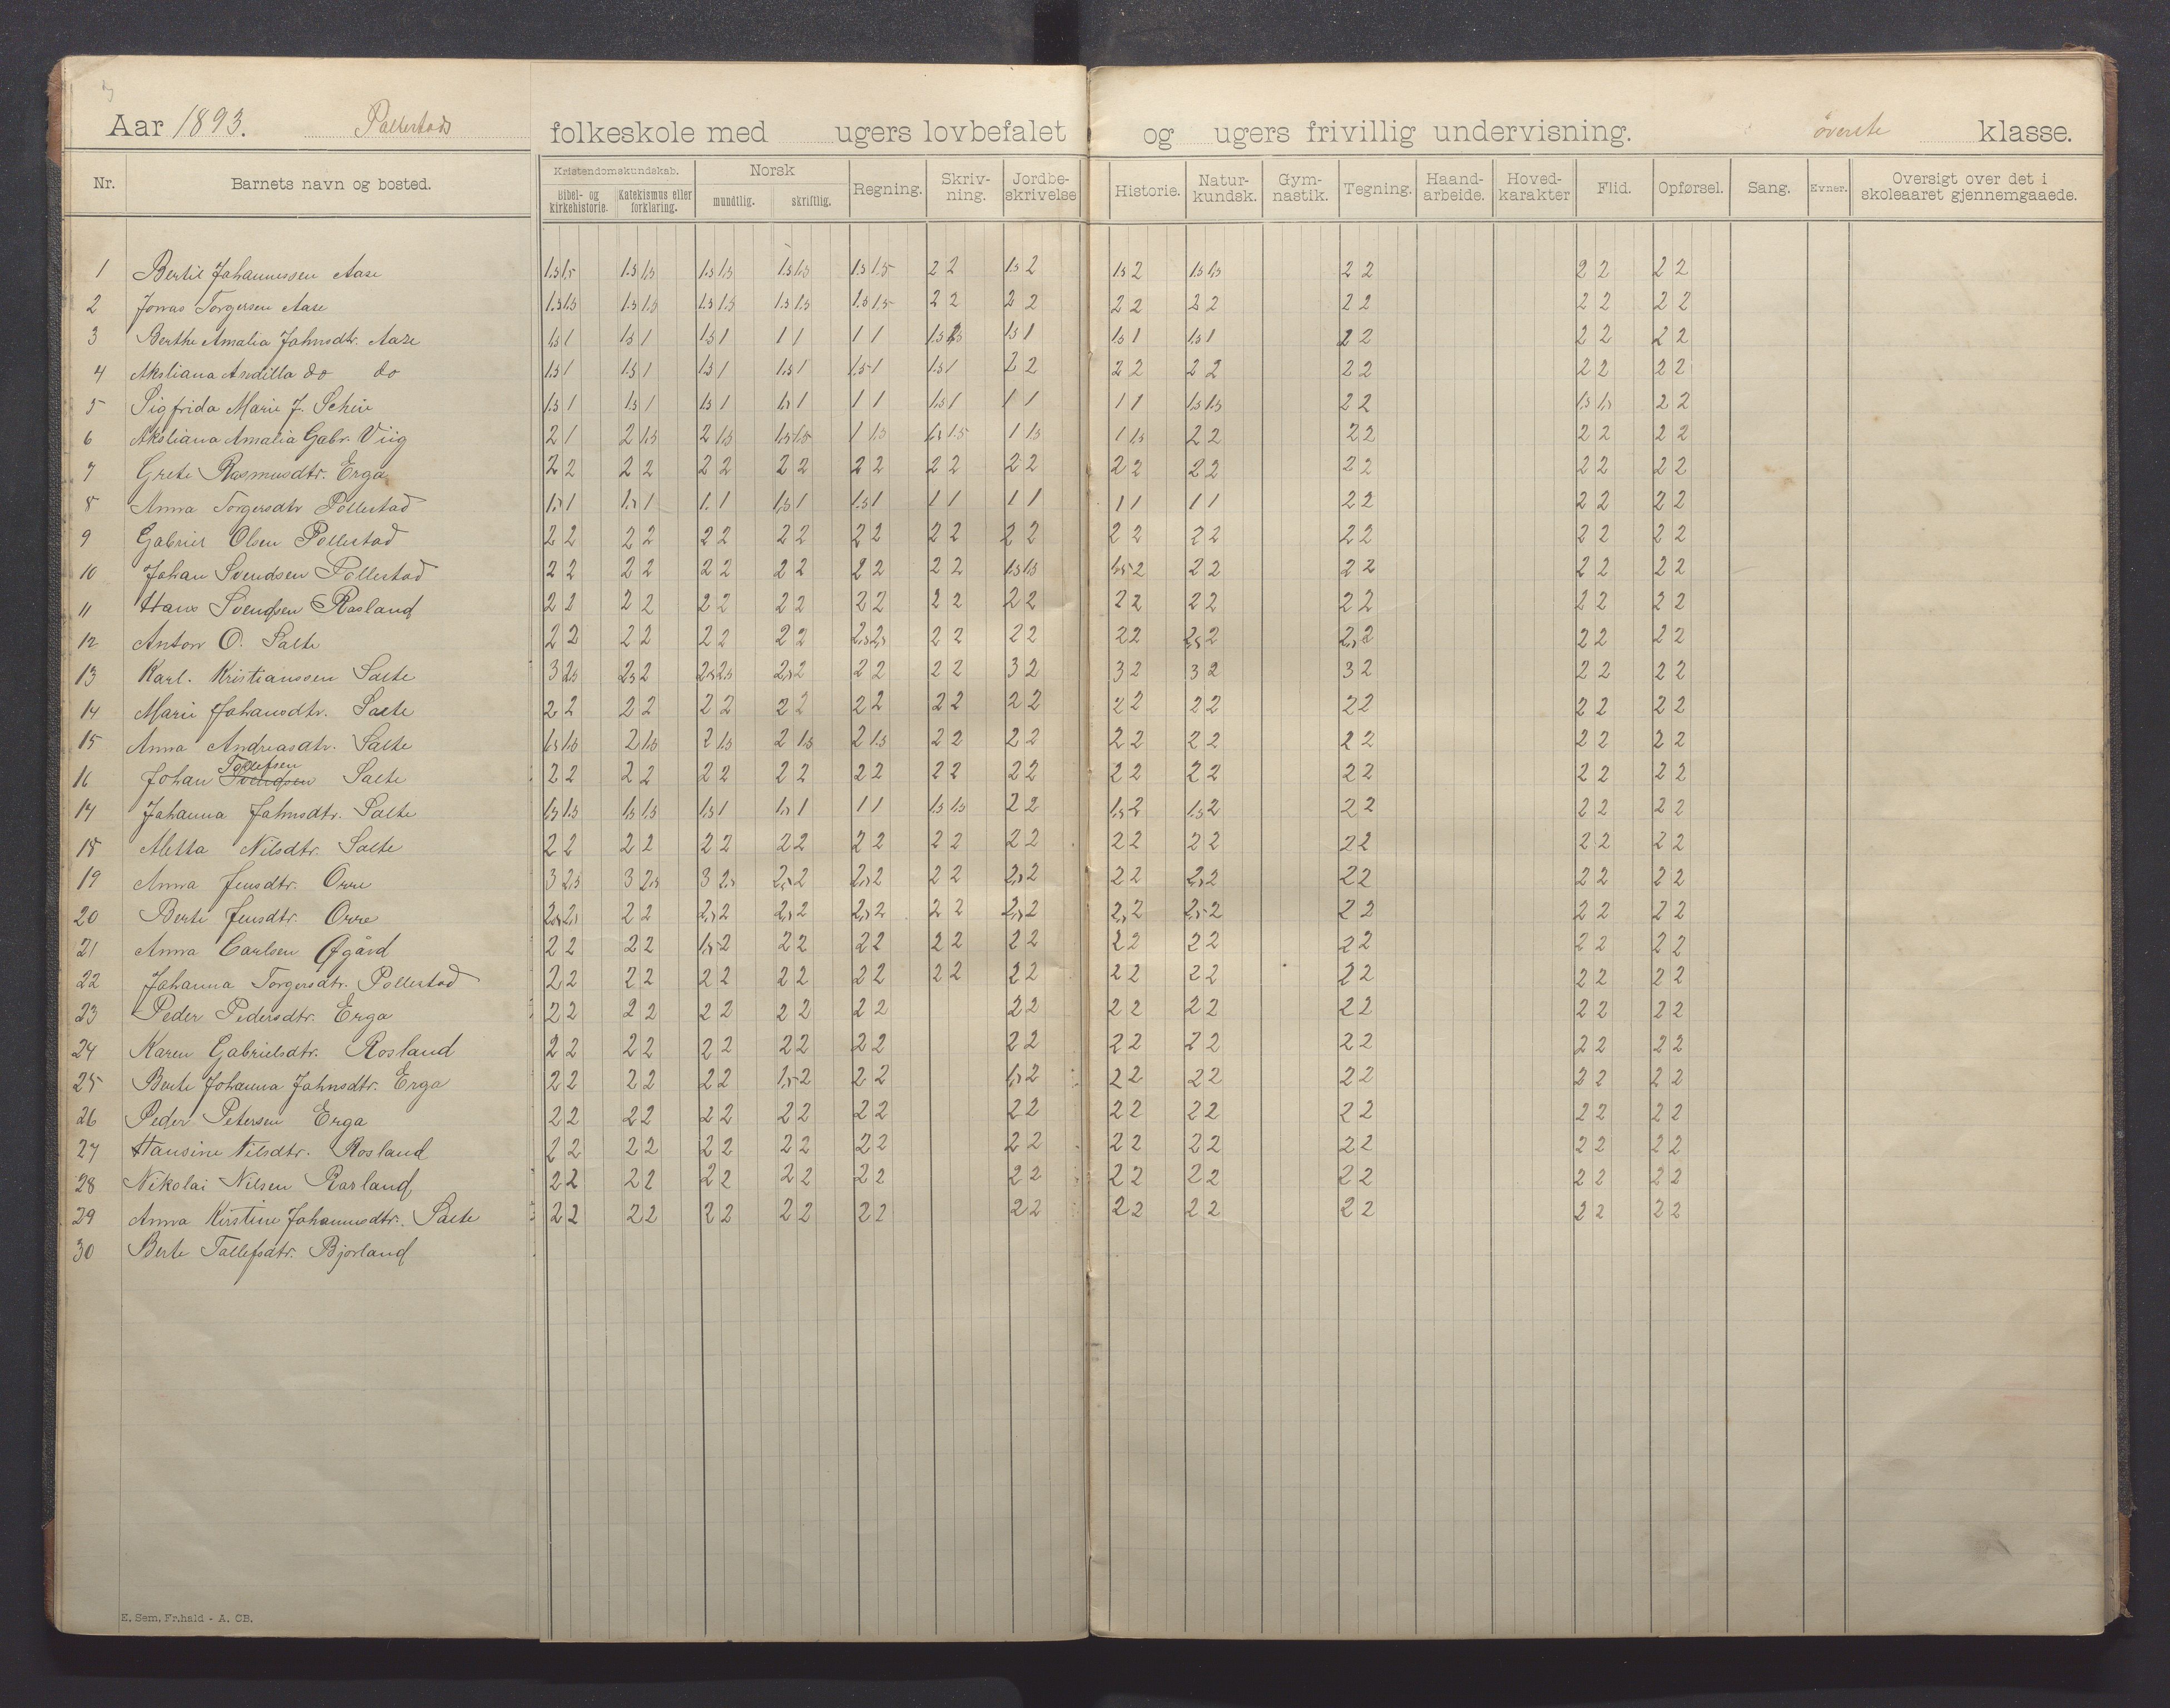 Aar 1893. Pollestads folkeskole med ugers lovbefalet og ugers frivillig undervisning. øverste klasse.
Nr. Barnets navn og bosted. Kristendomskundskab. Bibel- og kirkehistorie. Katekismus eller forklaring. Norsk mundtlig. skriftlig. Regning. Skriv-ning. Jordbe-skrivelse Historie. Natur-kundsk. Gym-nastik. Tegning. Haand-arbeide. Hoved-karakter Flid. Opførsel. Sang. Evner. Oversigt over det i skoleaaret gjennemgaaede.
1 Bertil Johannessen Aase 1.5 1.5 1.5 1.5 1.5 1.5 1.5 1.5 1.5 1.5 2 2 1.5 2 1.5 2 1.5 1.5 2 2 2 2 2 2
2 Jonas Torgersen Aase 1.5 1.5 1.5 1.5 1.5 1.5 1.5 1.5 1.5 1.5 2 2 2 2 2 2 2 2 2 2 2 2 2 2
3 Berthe Amalia Jahnsdtr. Aase 1.5 1 1.5 1 1.5 1 1 1 1 1 1.5 1.5 1.5 1 1.5 1 1.5 1 2 2 2 2 2 2
4 Aksliana Asdilla do do 1.5 1 1.5 1 1.5 1 1.5 1 1.5 1 1.5 1 2 2 2 2 2 2 2 2 2 2 2 2
5 Sigfrida Marie J. Scheie 1.5 1 1.5 1 1.5 1 1.5 1 1 1 1.5 1 1 1 1 1 1.5 1.5 2 2 1.5 1.5 2 2
6 Aksliana Amalia Gabr. Viig 2 1 2 1.5 2 1.5 1.5 1.5 1 1.5 1.5 1.5 1 1.5 1 1.5 2 2 2 2 2 2 2 2
7 Grete Rasmusdtr. Erga 2 2 2 2 2 2 2 2 2 2 2 2 2 2 2 2 2 2 2 2 2 2 2 2
8 Anna Torgersdtr Pollestad 1.5 1 1.5 1 1 1 1.5 1 1.5 1 1 1 1 1 1 1 1 1 2 2 2 2 2 2
9 Gabriel Olsen Pollestad 2 2 2 2 2 2 2 2 2 2 2 2 2 2 2 2 2 2 2 2 2 2 2 2
10 Johan Svendsen Pollestad 2 2 2 2 2 2 2 2 2 2 2 2 1.5 1.5 1.5 2 2 2 2 2 2 2 2 2
11 Hans Svendsen Rosland 2 2 2 2 2 2 2 2 2 2 2 2 2 2 2 2 2 2 2 2 2 2 2 2
12 Anton O. Salte 2 2 2 2 2 2 2 2 2.5 2.5 2 2 2 2 2 2 2.5 2 2.5 2 2 2 2 2
13 Karl. Kristianssen Salte 3 2.5 2.5 2 2.5 2.5 2.5 2 2 2 2 2 3 2 3 2 3 2 3 2 2 2 2 2
14 Marie Johansdtr. Salte 2 2 2 2 2 2 2 2 2 2 2 2 2 2 2 2 2 2 2 2 2 2 2 2
15 Anna Andreasdtr. Salte 1.5 1.5 2 1.5 2 1.5 2 1.5 2 1.5 2 2 2 2 2 2 2 2 2 2 2 2 2 2
Tollefsen
16 Johan Svendsen Salte 2 2 2 2 2 2 2 2 2 2 2 2 2 2 2 2 2 2 2 2 2 2 2 2
17 Johanna Jahnsdtr. Salte 1.5 1.5 1.5 1.5 1.5 1 1.5 1 1 1 1.5 1.5 2 2 1.5 2 1.5 2 2 2 2 2 2 2
18 Metta Nilsdtr. Salte 2 2 2 2 2 2 2 2 2 2 2 2 2 2 2 2 2 2 2 2 2 2 2 2
19 Anna Jensdtr. Orre 3 2.5 3 2.5 3 2.5 2.5 2 2.5 2 2 2 2.5 2 2 2 2.5 2 2 2 2 2 2 2
20 Berte Jensdtr. Orre 2.5 2.5 2 2 2.5 2 2.5 2 2.5 2 2 2 2.5 2 2.5 2 2.5 2 2 2 2 2 2 2
21 Anna Carlsen Øgård 2 2 2 2 1.5 2 2 2 2 2 2 2 2 2 2 2 2 2 2 2 2 2 2 2
22 Johanna Torgersdtr. Pollestad 2 2 2 2 2 2 2 2 2 2 2 2 2 2 2 2 2 2 2 2 2 2 2 2
23 Peder Pedersdtr. Erga 2 2 2 2 2 2 2 2 2 2 2 2 2 2 2 2 2 2 2 2 2 2
24 Karen Gabrielsdtr. Rosland 2 2 2 2 2 2 2 2 2 2 2 2 2 2 2 2 2 2 2 2 2 2
25 Berte Johanna Jahnsdtr. Erga 2 2 2 2 2 2 1.5 2 2 2 1.5 2 2 2 2 2 2 2 2 2 2 2
26 Peder Petersen Erga 2 2 2 2 2 2 2 2 2 2 2 2 2 2 2 2 2 2 2 2 2 2
27 Hansine Nilsdtr. Rosland 2 2 2 2 2 2 2 2 2 2 2 2 2 2 2 2 2 2 2 2 2 2
28 Nikolai Nilsen Rosland 2 2 2 2 2 2 2 2 2 2 2 2 2 2 2 2 2 2 2 2 2 2
29 Anna Kirstine Johannesdtr. Salte 2 2 2 2 2 2 2 2 2 2 2 2 2 2 2 2 2 2 2 2 2 2
30 Berte Tollefsdtr. Bjorland
E. Sem, Fr.hald - A. CB.